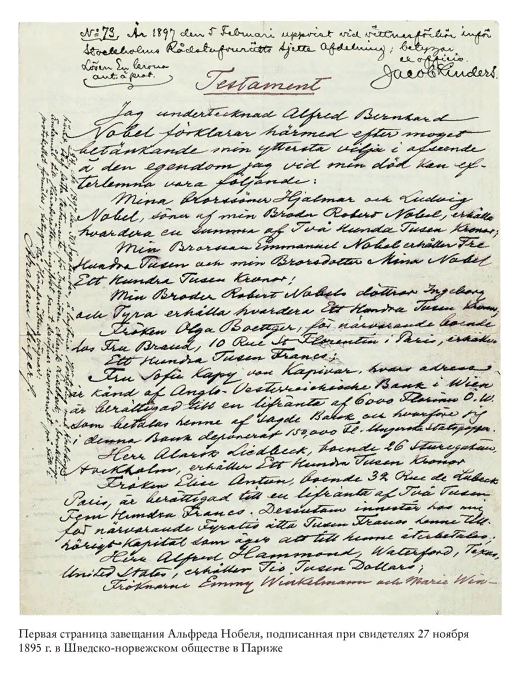 No 73. År 1897 den 5 Februari uppvist vid vittnesförhör inför
Stockholms Rådstufvurätts sjette Afdelning; betygar
Lösen En krona ex officio.
Jacob
Testament
Jag undertecknad Alfred Bernhard
Nobel förklarar härmed efter moget
betänkande min yttersta vilja i afseende
å den egendom jag vid min död kan ef-
terlemna vara följande:
Mina Brorssöner Hjalmar och Ludvig
Nobel, söner af min Broder Robert Nobel, erhålla
hvardera en summa af Två Hundra Tusen Kronor;
Min Brorsson Emmanuel Nobel erhåller Tre
Hundra Tusen och min Brorsdotter Mina Nobel
Ett Hundra Tusen Kronor;
Min Broder Robert Nobels döttrar Ingeborg
och Tyra erhålla hvardera Ett Hundra Tusen Kronor;
Fröken Olga Boettger, för närvarande boende
hos Fru Brand, 10 Rue St Florentin i Paris, erhåller
Ett Hundra Tusen Francs;
Fru Sofie Kapy von Kapivar, hvars adress
är känd af Anglo-Oesterreichische Bank i Wien
är berättigad till en lifränta af 6000 Florins Ö.W.
som betalas henne af sagde Bank och hvarföre jag
i denna Bank deponerat 150,000 Fl. i Ungerska statspapper.
Herr Alarik Liedbeck, boende 26 Sturegatan,
Stockholm, erhåller Ett Hundra Tusen Kronor
Fröken Elise Antun, boende 32 Rue de Lubeck
Paris, är berättigad till en lifränta af Två Tusen
Fem Hundra Francs. Dessutom innestår hos mig
för närvarande Fyratio åtta Tusen Francs henne till-
hörigt kapital som äger att till henne återbetalas;
Herr Alfred Hammond, Waterford, Texas,
United States, erhåller Tio Tusen Dollars;
Fröknarne Emmy Winkelmann och Marie Win-
Первая страница завещания Альфреда Нобеля, подписанная при свидетелях 27 ноября
1895 г. в Шведско-норвежском обществе в Париже